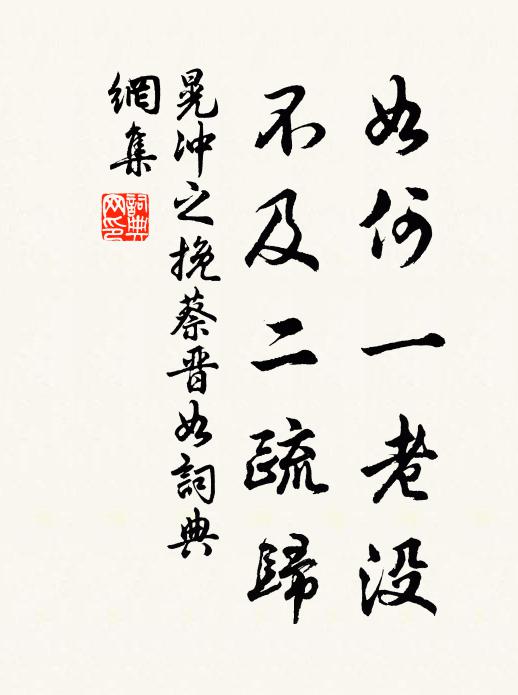 如何一老没
不及二疏歸
晁沖之挽蔡晋如詞典
網集
詞典
网印